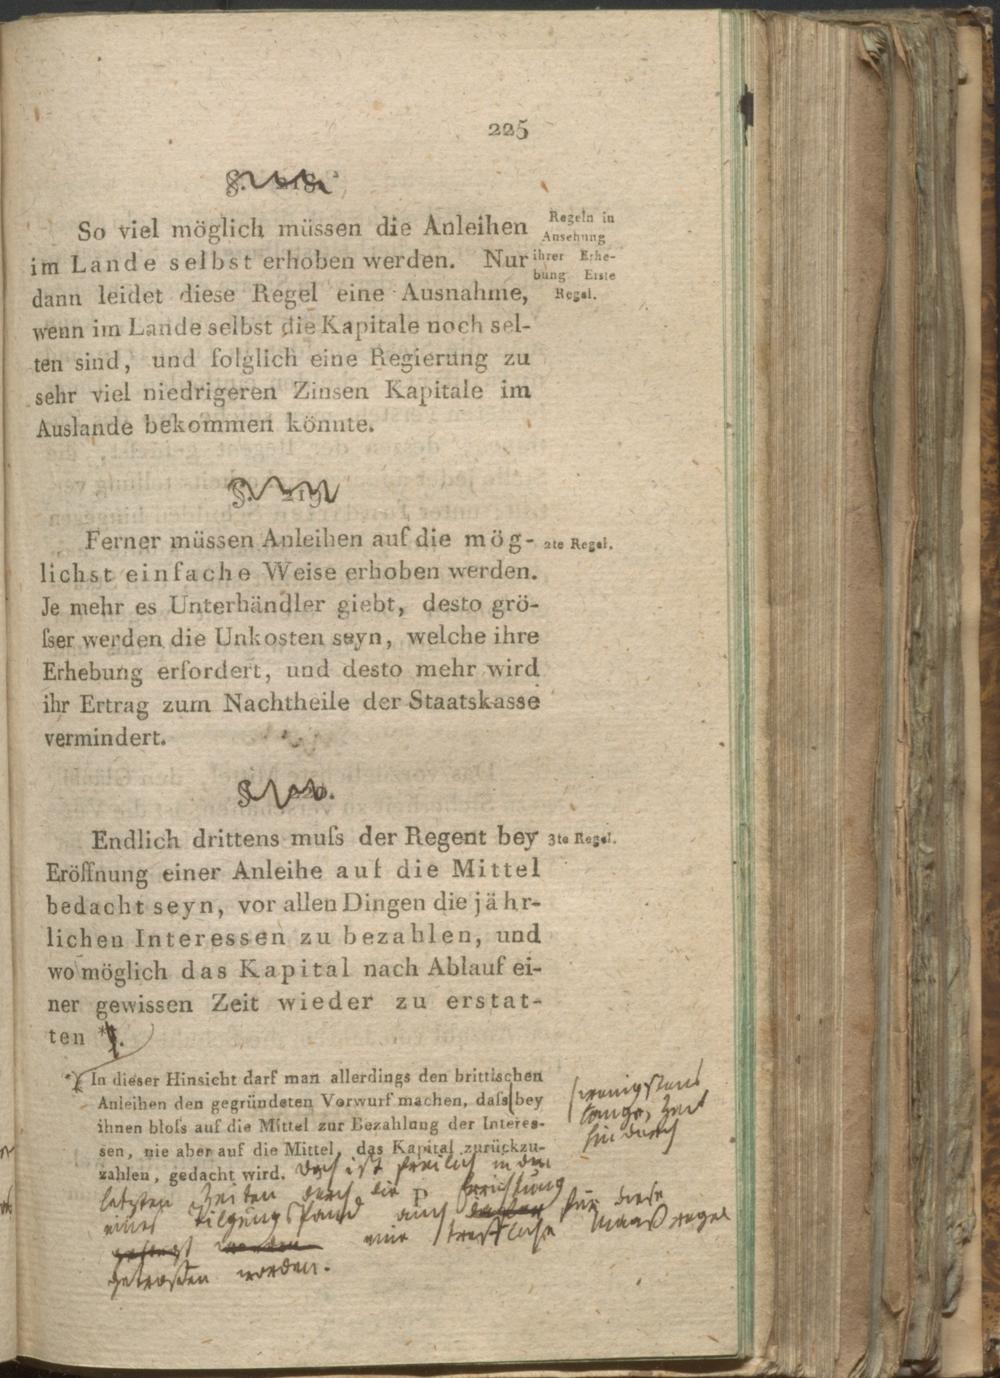 225
§. 218.
So viel möglich müssen die Anleihen
im Lande selbst erhoben werden. Nur
dann leidet diese Regel eine Ausnahme,
wenn im Lande selbst die Kapitale noch sel-
ten sind, und folglich eine Regierung zu
sehr viel niedrigeren Zinsen Kapitale im
Auslande bekommen könnte.
Regeln in
Ansehung
ihrer Erhe-
bung Erste
Regel.
§. 219.
Ferner müssen Anleihen auf die mög-
lichst einfache Weise erhoben werden.
Je mehr es Unterhändler giebt, desto grö-
ſser werden die Unkosten seyn, welche ihre
Erhebung erfordert, und desto mehr wird
ihr Ertrag zum Nachtheile der Staatskasse
vermindert.
2te Regel.
§. 220.
Endlich drittens muſs der Regent bey
Eröffnung einer Anleihe auf die Mittel
bedacht seyn, vor allen Dingen die jähr-
lichen Interessen zu bezahlen, und
wo möglich das Kapital nach Ablauf ei-
ner gewissen Zeit wieder zu erstat-
ten *).
3te Regel.
*) In dieser Hinsicht darf man allerdings den brittischen
Anleihen den gegründeten Vorwurf machen, daſs bey
ihnen bloſs auf die Mittel zur Bezahlung der Interes-
sen, nie aber auf die Mittel, das Kapital zurückzu-
zahlen, gedacht wird. Doch ist freilich in den
letzten Zeiten durch die Errichtung
eines Tilgungsfond auch für diese
eine treffliche Maasregel
getroffen worden.
P
wenigstens
lange Zeit
hindurch